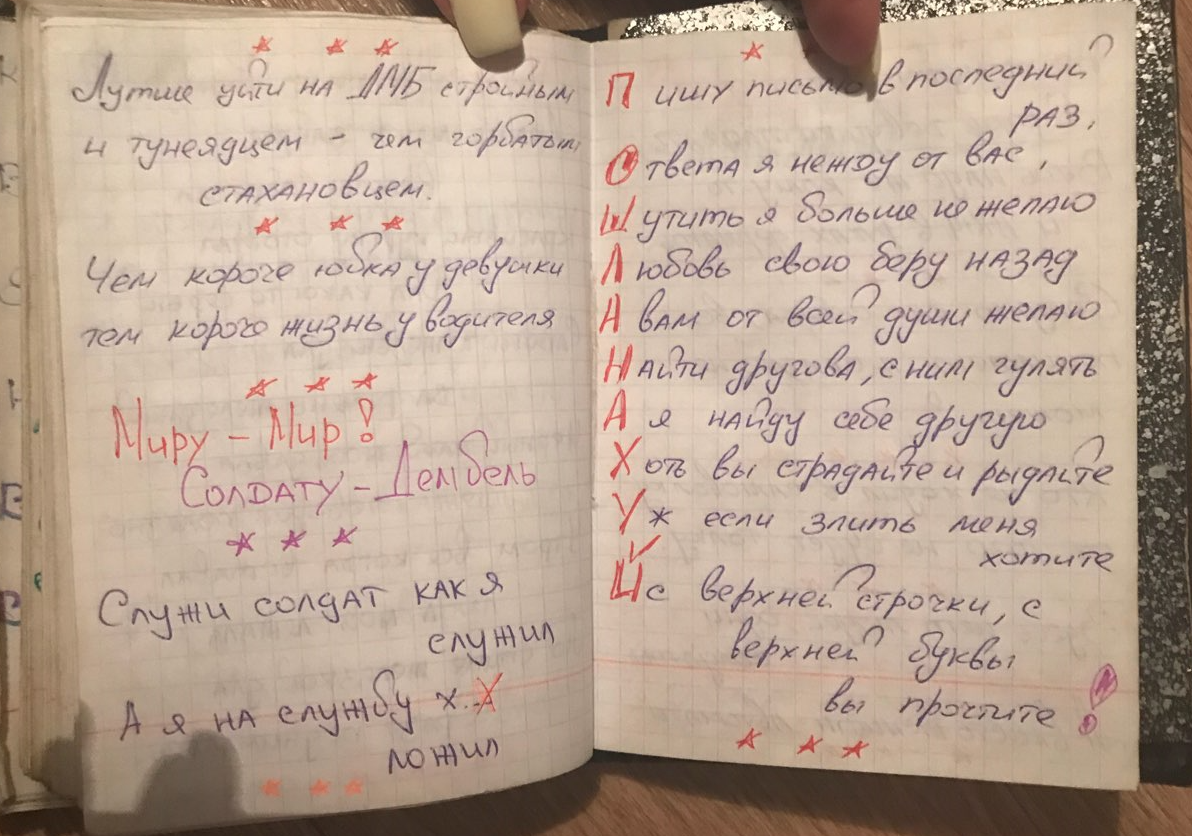 * * *
Лутше уйти на ДМБ стройным
и тунеядцем - чем горбатым
стахановцем.
* * *
Чем короче юбка у девушки
тем короче жизнь у водителя
* * *
Миру - Мир!
Солдату - Дембель
* * *
Служи солдат как я
служил
А я на службу х..Х
ложил
* * *
*
Пишу письмо в последний
раз,
Ответа я нежду от вас,
Шутить я больше не желаю
Любовь свою беру назад
А вам от всей души желаю
Найти другова, с ним гулять
А я найду себе другую
Хоть вы страдайте и рыдайте
Уж если злить меня
хотите
Йс верхней строчки, с
верхней буквы
вы прочтите!
* * *